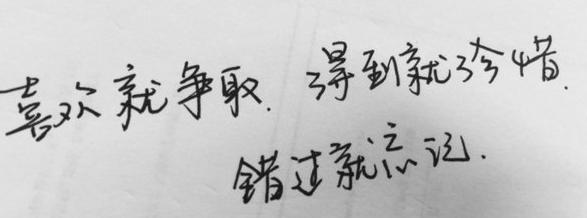 喜欢就争取.得到就珍惜.
错过就忘记.